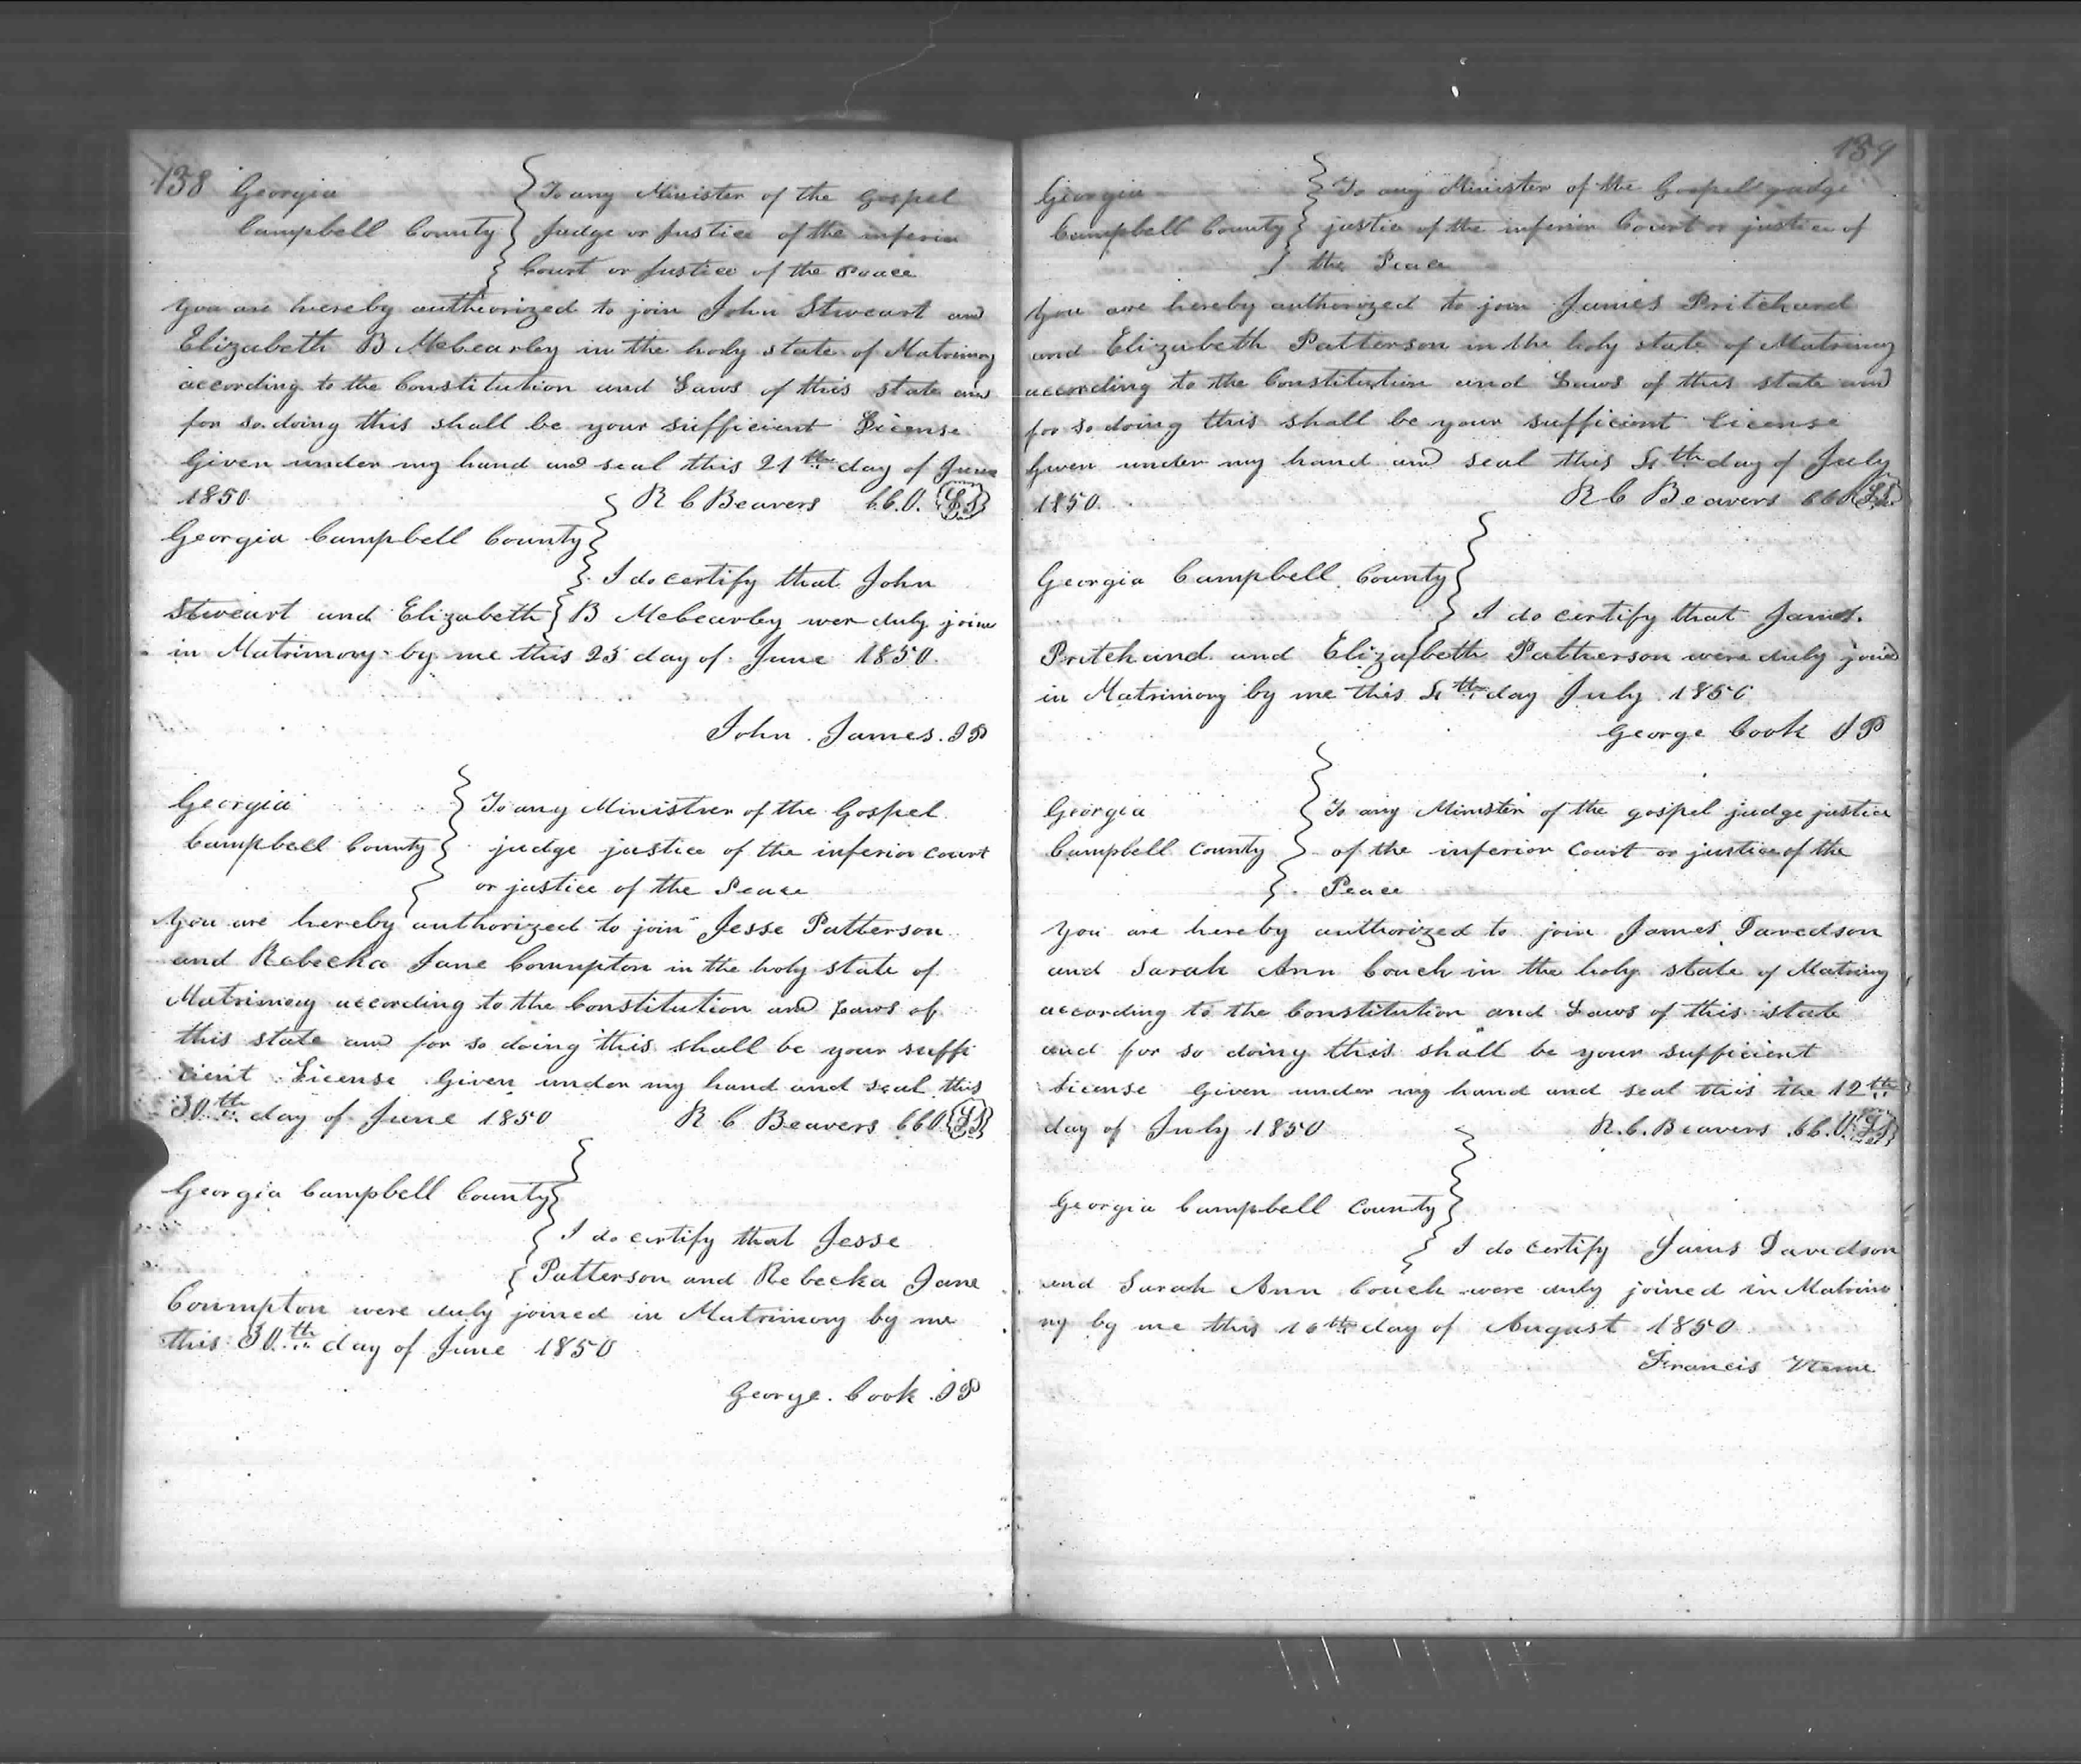 138 Georgia } To any Minister of the Gospel
Campbell County } Judge or Justice of the inferior
} Court or Justice of the Peace
You are hereby autheorized to join John Stweart and
Elizabeth B McCearley in the holy state of Matrimony
according to the Constitution and Laws of this state and
for so doing this shall be your sufficient License
Given under my hand and seal this 21th day of June
1850 R C Beavers C.C.O. {LS}
Georgia Campbell County }
} I do certify that John
Stweart and Elizabeth } B McCearley wer duly joine
in Matrimony by me this 25 day of June 1850.
John James. J P
Georgia } To any Ministrer of the Gospel
Campbell County } judge justice of the inferior court
} or justice of the Peace
You are hereby authorized to join Jesse Patterson
and Rebecka Jane Coumpton in the holy state of
Matrimony according to the Constitution and Laws of
this state and for so doing this shall be your suffi
cient License Given under my hand and seal this
30th day of June 1850 R C Beavers CCO {LS}
Georgia Campbell County }
{ I do certify that Jesse
{ Patterson and Rebecka Jane
Coumpton were duly joined in Matrimony by me
this 30th day of June 1850
George. Cook. J P
139
Georgia } To any Minister of the Gospel judge
Campbell County } justice of the inferior Court or justice of
} the Peace
You are hereby authorized to join James Pritchard
and Elizabeth Patterson in the holy state of Matrimony
according to the Constitution and Laws of this state and
for so doing this shall be your sufficient License
Given under my hand and seal this 4th day of July
1850. R C Beavers CCO {LS}
Georgia Campbell County }
} I do certify that James.
Pritchand and Elizabeth Patherson were duly joined
in Matrimony by me this 4th day July 1850
George Cook J P
Georgia } To any Minister of the gospel judge justice
Campbell County } of the inferior Court or justice of the
} Peace
You are hereby authorized to join James Davedson
and Sarah Ann Couch in the holy state of Matrimy
according to the Constitution and Laws of this state
and for so doing this shall be your sufficient
License Given under my hand and seal this the 12th
day of July 1850 R. C. Beavers C.C.O. {LS}
Georgia Campbell County }
} I do certify James Davidson
and Sarah Ann Couch were duly joined in Matrimo
ny by me this 16th day of August 1850
Francis